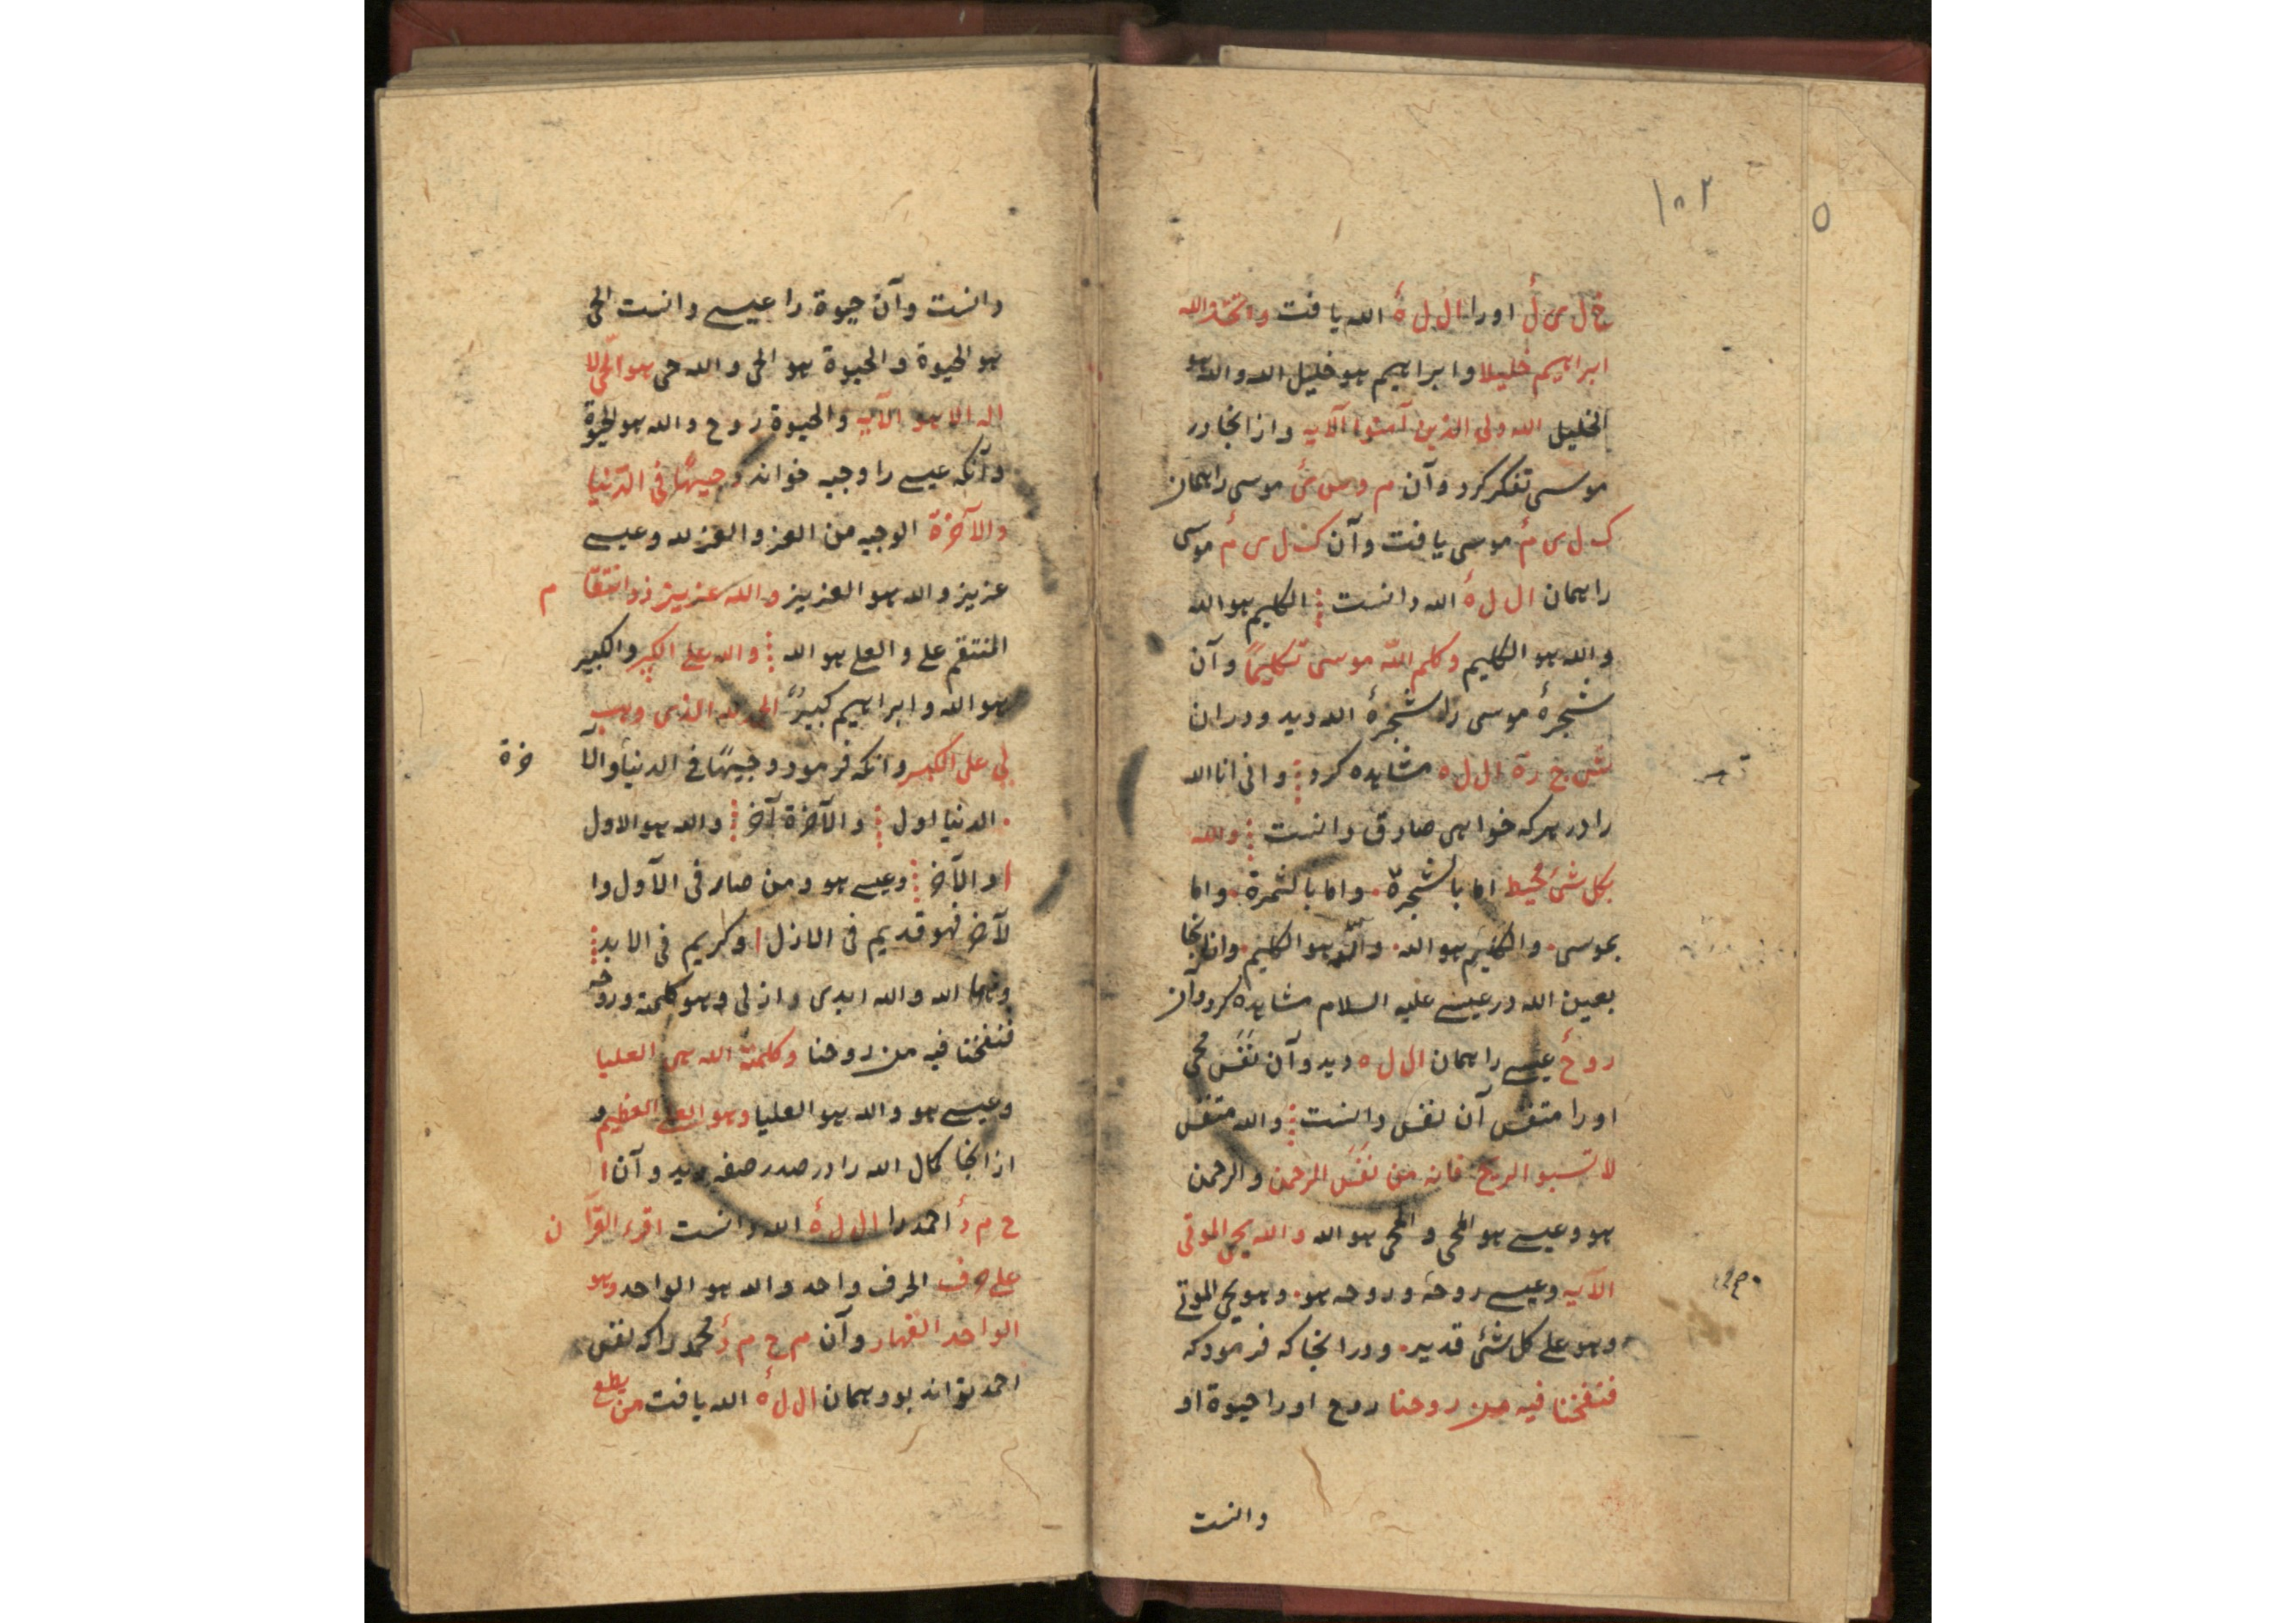 ١٠٢
٥
خ ل ی ل اورا ا ل ل ه الله یافت واتخذ الله
ابراهیم خلیلا وابراهیم هو خلیل الله والله هو
الخلیل الله ولی الذین آمنوا الآیه و از انجا در
موسی تفکر کرد و آن م و س ی موسی را همان
ک ل ی م موسی یافت و آن ک ل ی م موسی
را همان ا ل ل ه الله دانست الکلیم هو الله
والله هو الکلیم وکلم الله موسی تکلیماً و آن
شجرهٔ موسی را شجرهٔ الله دید و در ان
ش ج رة ا ل ل ه مشاهده کرد و انی انا الله
را در هر که خواهی صادق دانست والله
بکل شئ محیط اما بالشجرة واما بالثمرة واما
بموسی والکلیم هو الله والله هو الکلیم و از انجا
بعین الله در عیسی علیه السلام مشاهده کرد و آن
روح عیسی را همان ا ل ل ه دید و آن نفس محی
اورا متنفس آن نفس دانست والله متنفس
لا تسبوا الریح فانه من نفس الرحمن والرحمن
هو وعیسی هو المحی والمحی هو الله والله یحی الموتی
الآیه وعیسی روحه وروحه هو وهو یحی الموتی
وهو علی کل شئ قدیر و در انجا که فرمود که
فنفخنا فیه من روحنا روح اورا حیوة او
دانست
دانست و آن حیوة را عیسی دانست الحی
هو الحیوة والحیوة هو الحی والله حی هو الحی لا
اله الا هو الآیه والحیوة روح والله هو الحیوة
و آنکه عیسی را وجیه خواند وجیهاً فی الدنیا
والآخرة الوجیه من العز والعز لله وعیسی
عزیز والله هو العزیز والله عزیز ذو انتقام
المنتقم علی والعلی هو الله والله علی الکبیر والکبیر
هو الله وابراهیم کبیر الحمد لله الذی وهب
لی علی الکبر و انکه فرمود وجیهاً فی الدنیا والآخرة
الدنیا اول والآخرة آخر والله هو الاول
والآخر وعیسی هو ومن صار فی الآول وا
لآخر فهو قدیم فی الازل وکریم فی الابد
الله والله ابدی وازلی وهو کلمته وروحه
فنفخنا فیه من روحنا وکلمة الله هی العلیا
وعیسی هو والله هو العلیا وهو العلی العظیم و
از انجا کمال الله را در صدر صفه دید و آن ا
ح م د احمد را ا ل ل ه الله دانست اقرء القرآن
علی حرف الحرف واحد والله هو الواحد وهو
الواحد القهار و آن م ح م د محمد را که نفس
احمد تواند بود همان ا ل ل ه الله یافت من یطع